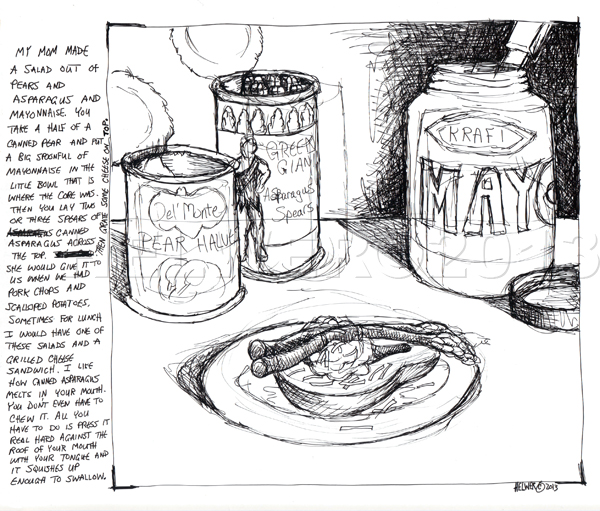 MY MOM MADE
A SALAD OUT OF
PEARS AND
ASPARAGUS AND
MAYONNAISE. YOU
TAKE A HALF OF A
CANNED PEAR AND PUT
A BIG SPOONFUL OF
MAYONNAISE IN THE
LITTLE BOWL THAT IS
WHERE THE CORE WAS.
THEN YOU LAY TWO
OR THREE SPEARS OF
CANNED
ASPARAGUS ACROSS
THE TOP.
THEN GRATE SOME CHEESE ON TOP.
SHE WOULD GIVE IT TO
US WHEN WE HAD
PORK CHOPS AND
SCALLOPED POTATOES.
SOMETIMES FOR LUNCH
I WOULD HAVE ONE OF
THESE SALADS AND A
GRILLED CHEESE
SANDWICH. I LIKE
HOW CANNED ASPARAGUS
MELTS IN YOUR MOUTH.
YOU DON'T EVEN HAVE TO
CHEW IT. ALL YOU
HAVE TO DO IS PRESS IT
REAL HARD AGAINST THE
ROOF OF YOUR MOUTH
WITH YOUR TONGUE AND
IT SQUISHES UP
ENOUGH TO SWALLOW.
Del' Monte
PEAR HALVE
GREEN
GIAN
Asparagus
Spears
KRAFT
MAYO
HELWER © 2013